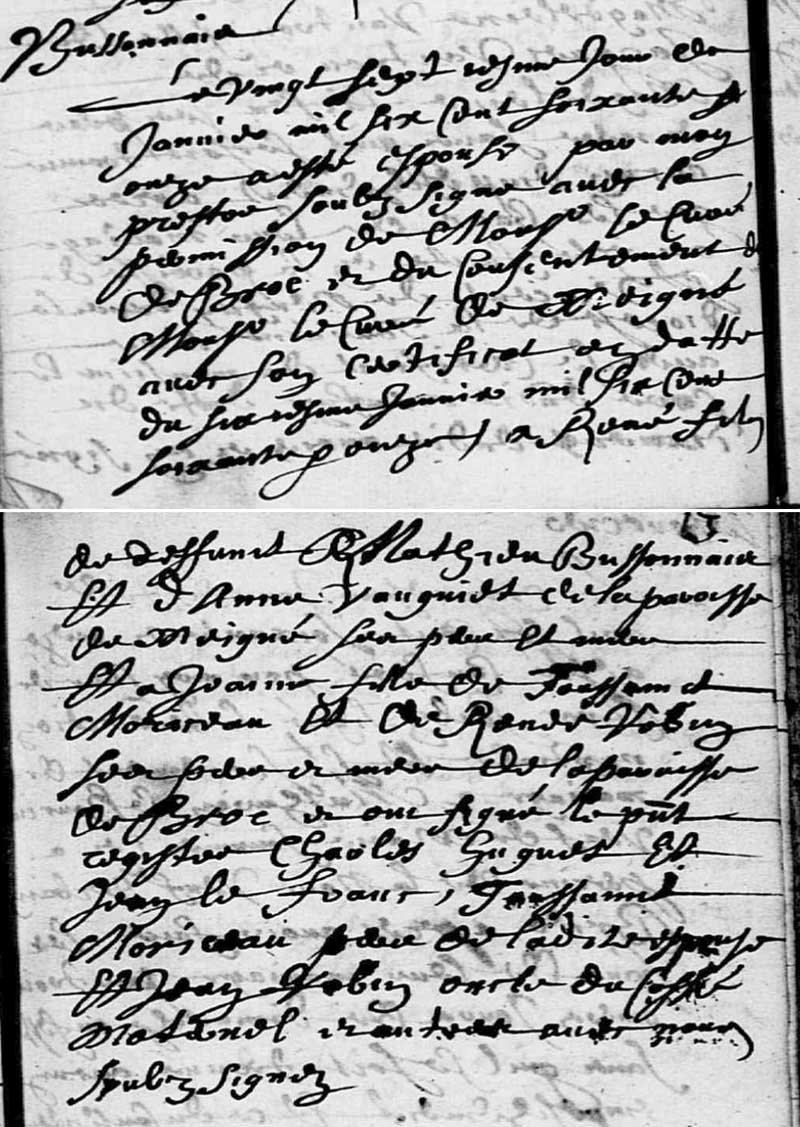 Bussonnaie
Le vingt sept iesme Jour de
Janvier mil six cent soixante et
onze a esté espousé par moy
prestre soubz signé avec la
permission de Monsr le Curé
de Broc et du consentement de
Monsr le Curé de Meigné
avec son certificat en datte
du six iesme Janvier mil six cent
soixante onze, a René filz
de deffunct Mathieu Bussonnaie
Et d'Anne Vauguiet de la paroisse
de Meigné ses pere Et mere
Et a Jeanne fille de Toussainct
Moriceau Et de Renée Vobin
ses pere et mere de la paroisse
de Broc et ont signé le pñt
registre Charles Huguet Et
Jean le franc, Toussainct
Moriceau pere de ladite espouse
Et Jean Vobin oncle du Costé
Maternel et autres avec nous
soubz signez